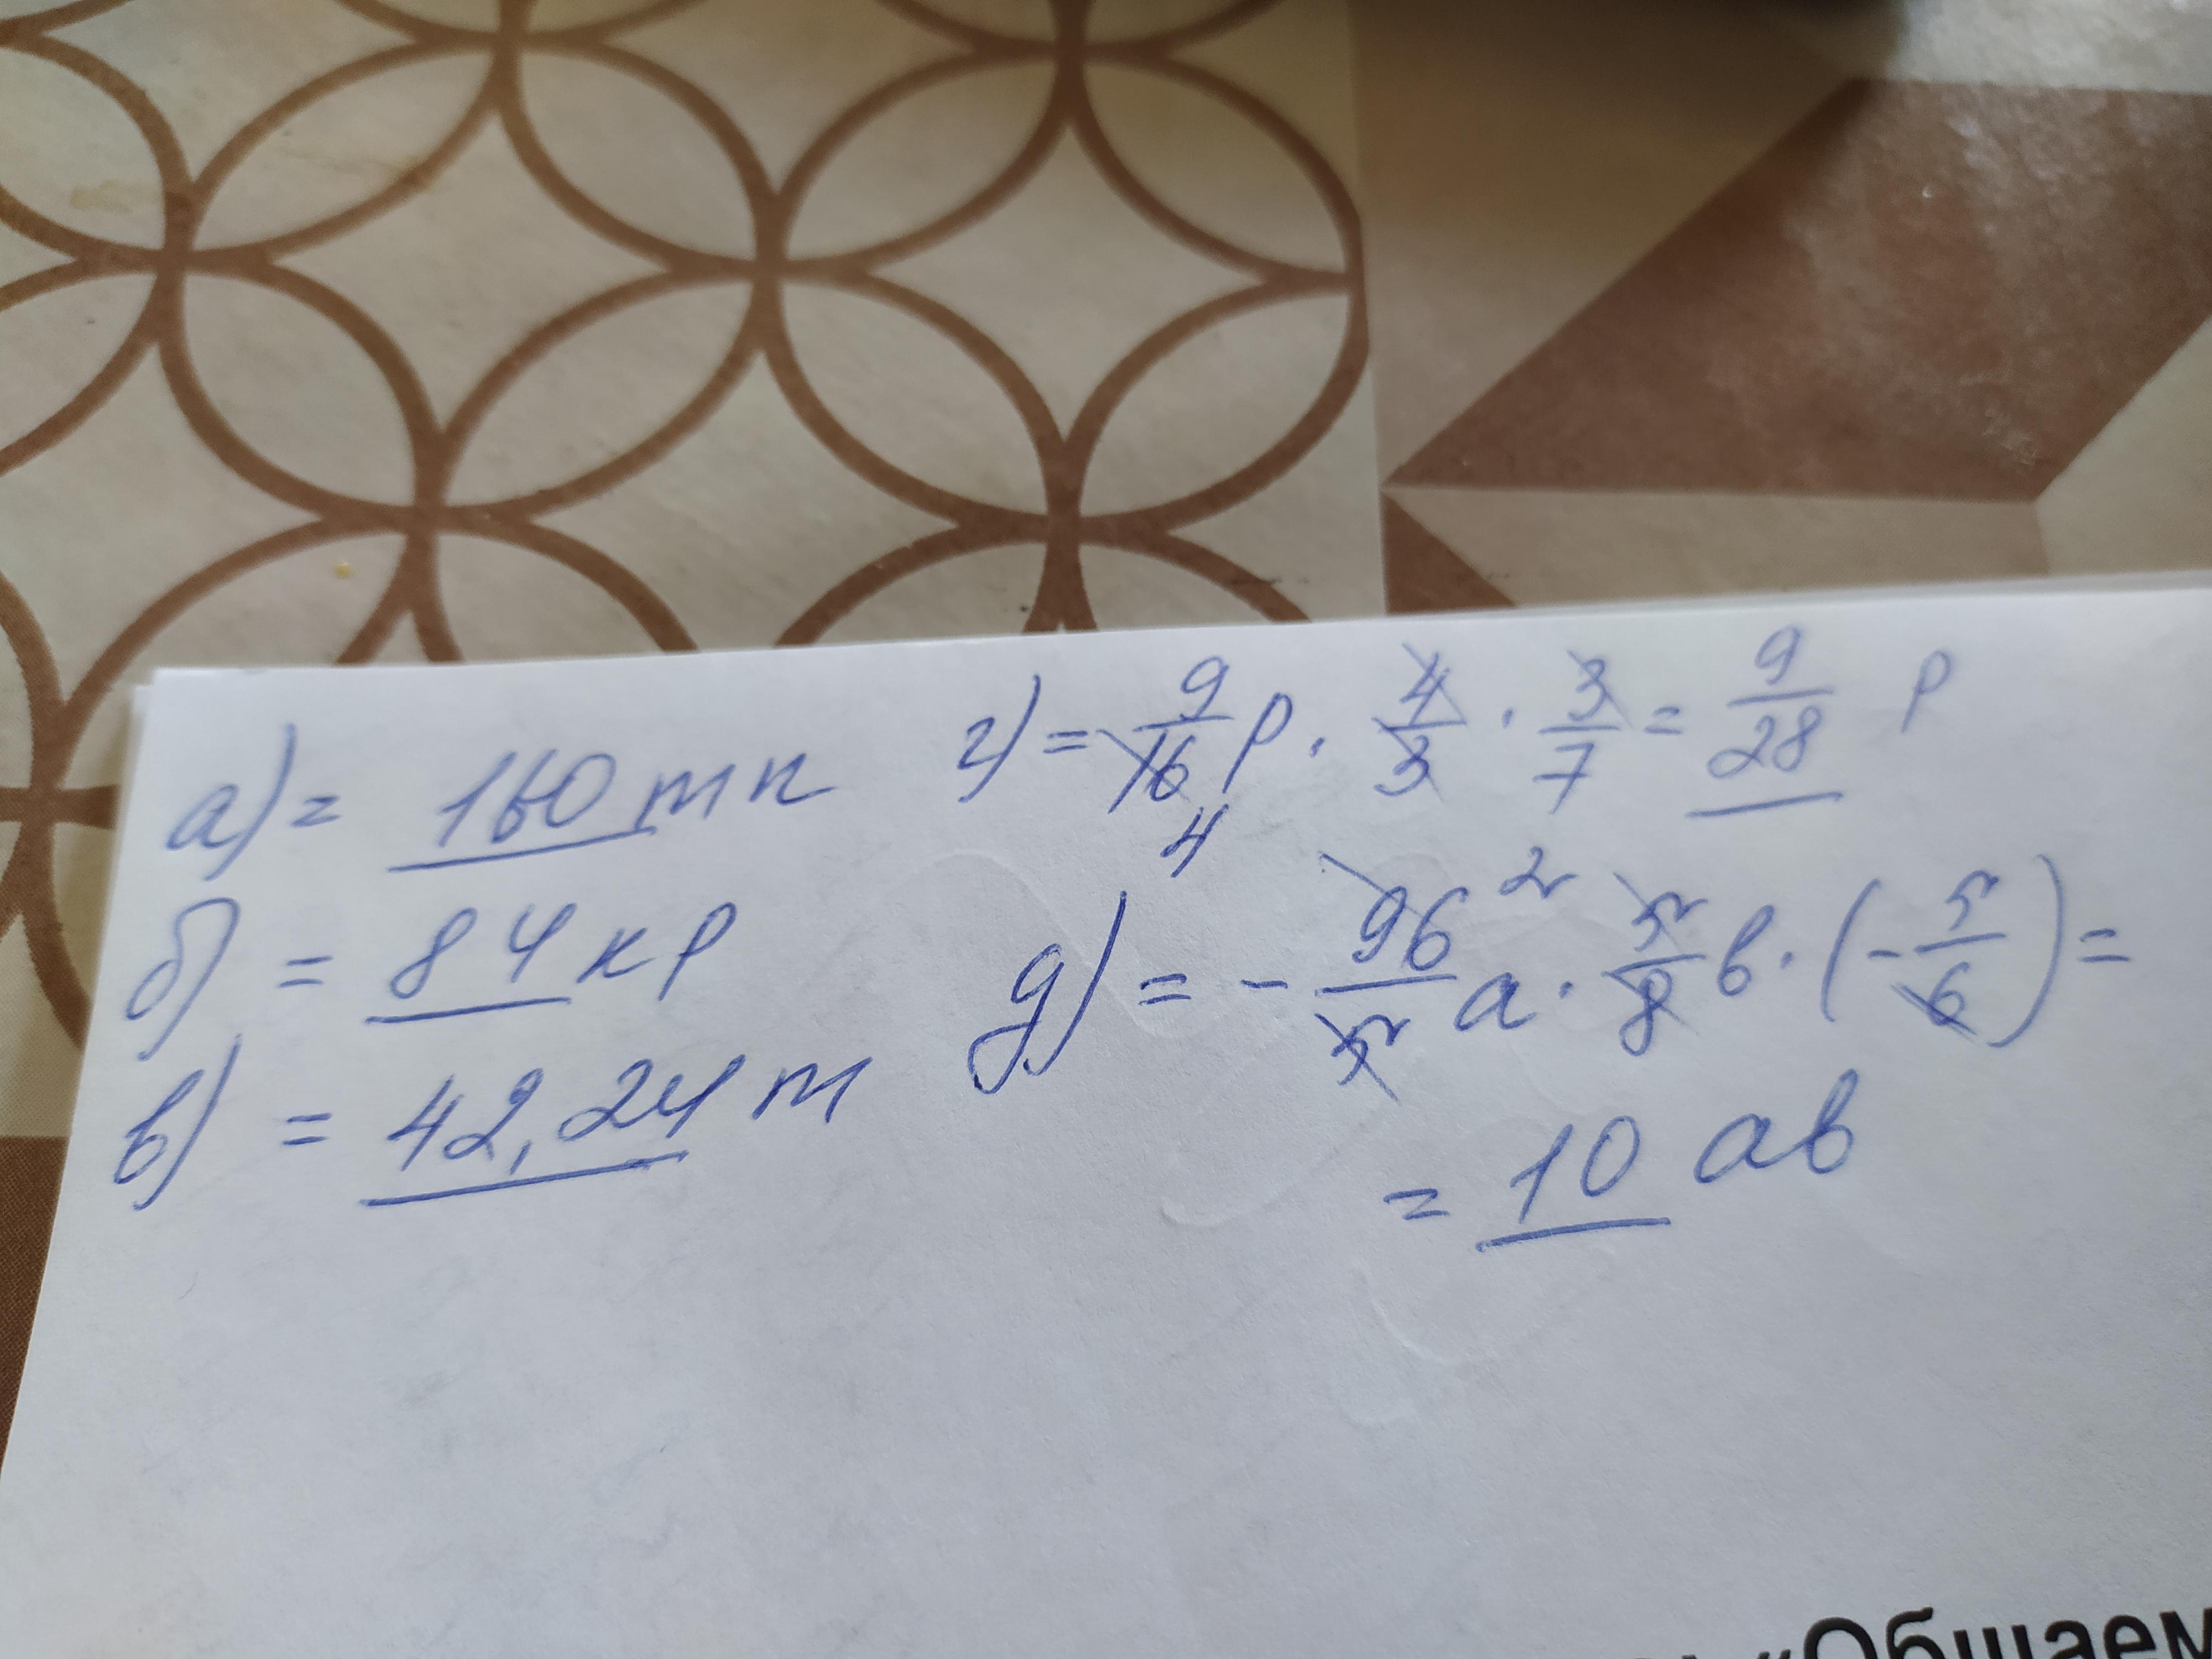 а) = 160 mn
б) = 84 кр
в) = 42,24 m
г) = 9/16 p · 4/3 · 3/7 = 9/28 p
4
д) = - 96/5 a · 5/8 b · (- 5/6) =
2
= 10 ab
«Общаем